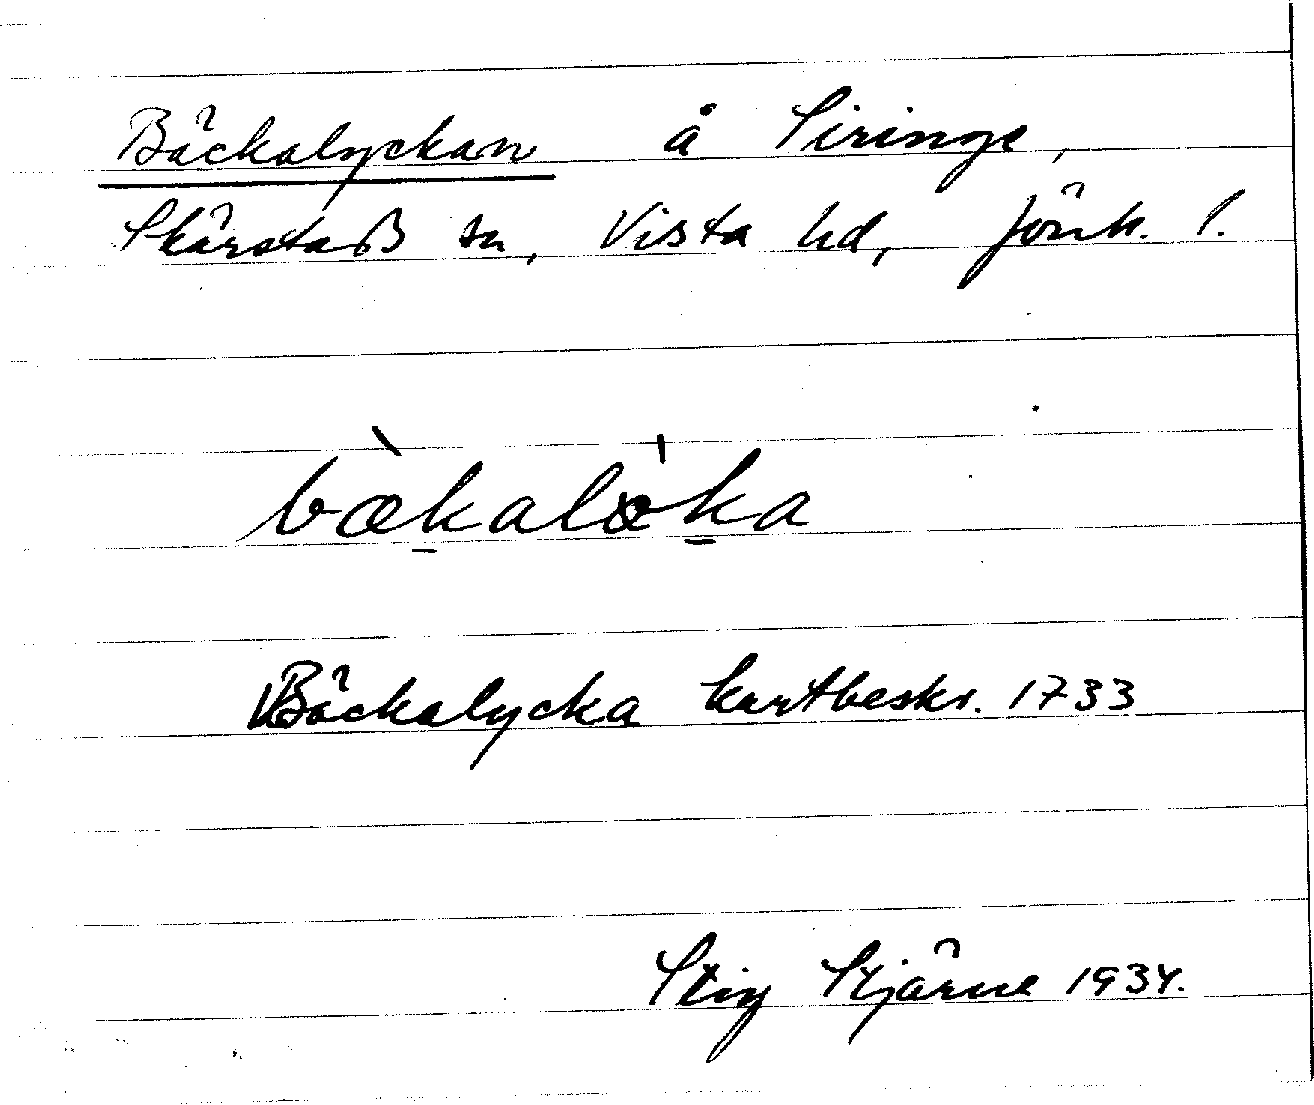 Bäckalyckan å Siringe,
Skärstads sn, Vista hd, Jönk. l.
bækaløka
Bäckalycka kartbeskr. 1733
Stig Stjärne 1934.